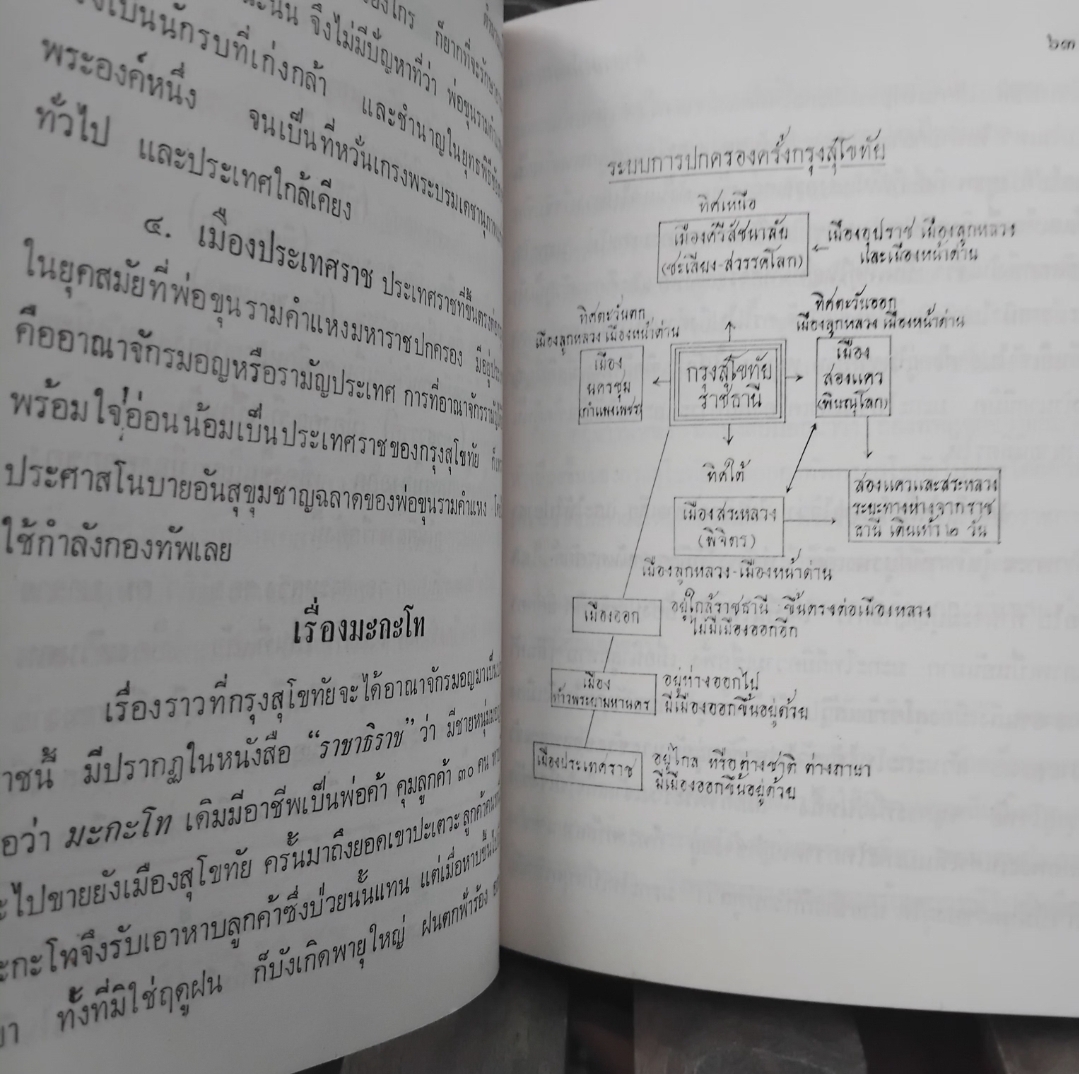 ก็ยากที่จะรักษา
จึงไม่มีปัญหาที่ว่า พ่อขุนราม
เป็นนักรบที่เก่งกล้า และชำนาญในยุทธพิธี
พระองค์หนึ่ง จนเป็นที่หวั่นเกรงพระบรมเดชานุภาพ
ทั่วไป และประเทศใกล้เคียง
๔. เมืองประเทศราช ประเทศราชที่ขึ้นตรงต่อ
ในยุคสมัยที่พ่อขุนรามคำแหงมหาราชปกครอง มีอยู่
คืออาณาจักรมอญหรือรามัญประเทศ การที่อาณาจักร
พร้อมใจอ่อนน้อมเป็นประเทศราชของกรุงสุโขทัย
ประศาสโนบายอันสุขุมชาญฉลาดของพ่อขุนรามคำแหง
ใช้กำลังกองทัพเลย
เรื่องมะกะโท
เรื่องราวที่กรุงสุโขทัยจะได้อาณาจักรมอญมาเป็น
ราชนี้ มีปรากฏในหนังสือ “ราชาธิราช” ว่า มีชายหนุ่ม
อว่า มะกะโท เดิมมีอาชีพเป็นพ่อค้า คุมลูกค้า ๓๐ คน
ะไปขายยังเมืองสุโขทัย ครั้นมาถึงยอดเขาปะเตวะ ลูกค้า
ะกะโทจึงรับเอาหาบลูกค้าซึ่งป่วยนั้นแทน แต่เมื่อหาบขึ้น
ทั้งที่มิใช่ฤดูฝน ก็บังเกิดพายุใหญ่ ฝนตกฟ้าร้อง
๖๓
ระบบการปกครองครั้งกรุงสุโขทัย
ทิศเหนือ
เมืองศรีสัชนาลัย
(ชะเลียง-สวรรคโลก)
เมืองอุปราช เมืองลูกหลวง
และเมืองหน้าด่าน
ทิศตะวันตก
เมืองลูกหลวง เมืองหน้าด่าน
เมือง
นครชุม
(กำแพงเพชร)
กรุงสุโขทัย
ราชธานี
ทิศตะวันออก
เมืองลูกหลวง เมืองหน้าด่าน
เมือง
สองแคว
(พิษณุโลก)
ทิศใต้
เมืองสระหลวง
(พิจิตร)
เมืองลูกหลวง-เมืองหน้าด่าน
สองแควและสระหลวง
ระยะทางห่างจากราช
ธานี เดินเท้า ๒ วัน
เมืองออก
อยู่ใกล้ราชธานี ขึ้นตรงต่อเมืองหลวง
ไม่มีเมืองออกอีก
เมือง
ท้าวพระยามหานคร
อยู่ห่างออกไป
มีเมืองออกขึ้นอยู่ด้วย
เมืองประเทศราช
อยู่ไกล หรือต่างชาติ ต่างภาษา
มีเมืองออกขึ้นอยู่ด้วย